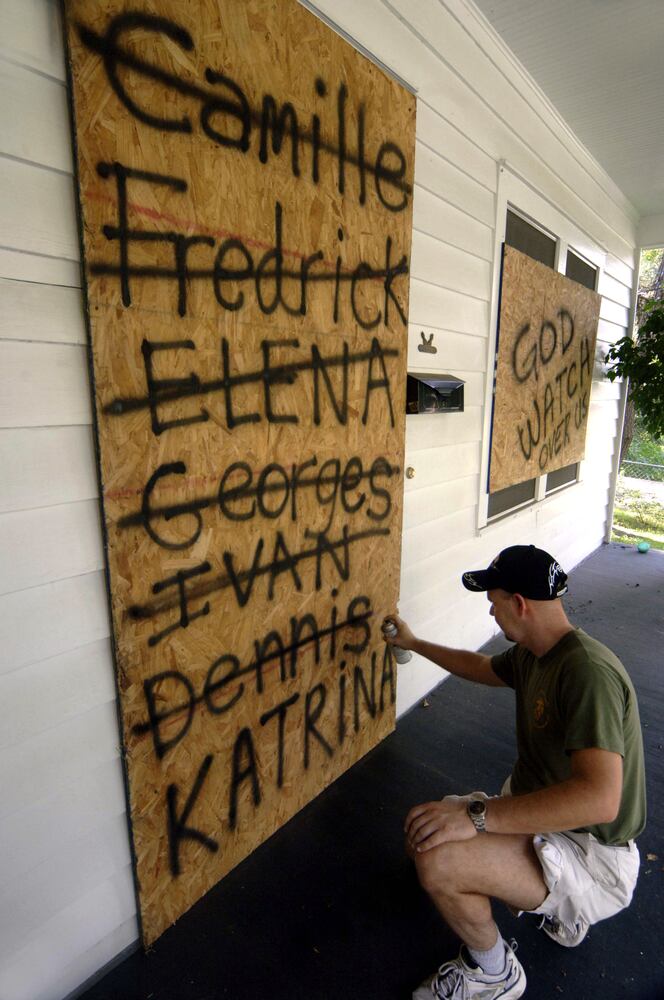 Camille
Fredrick
ELENA
Georges
IVAN
Dennis
KATRiNA
GOD
WATCH
OVER US